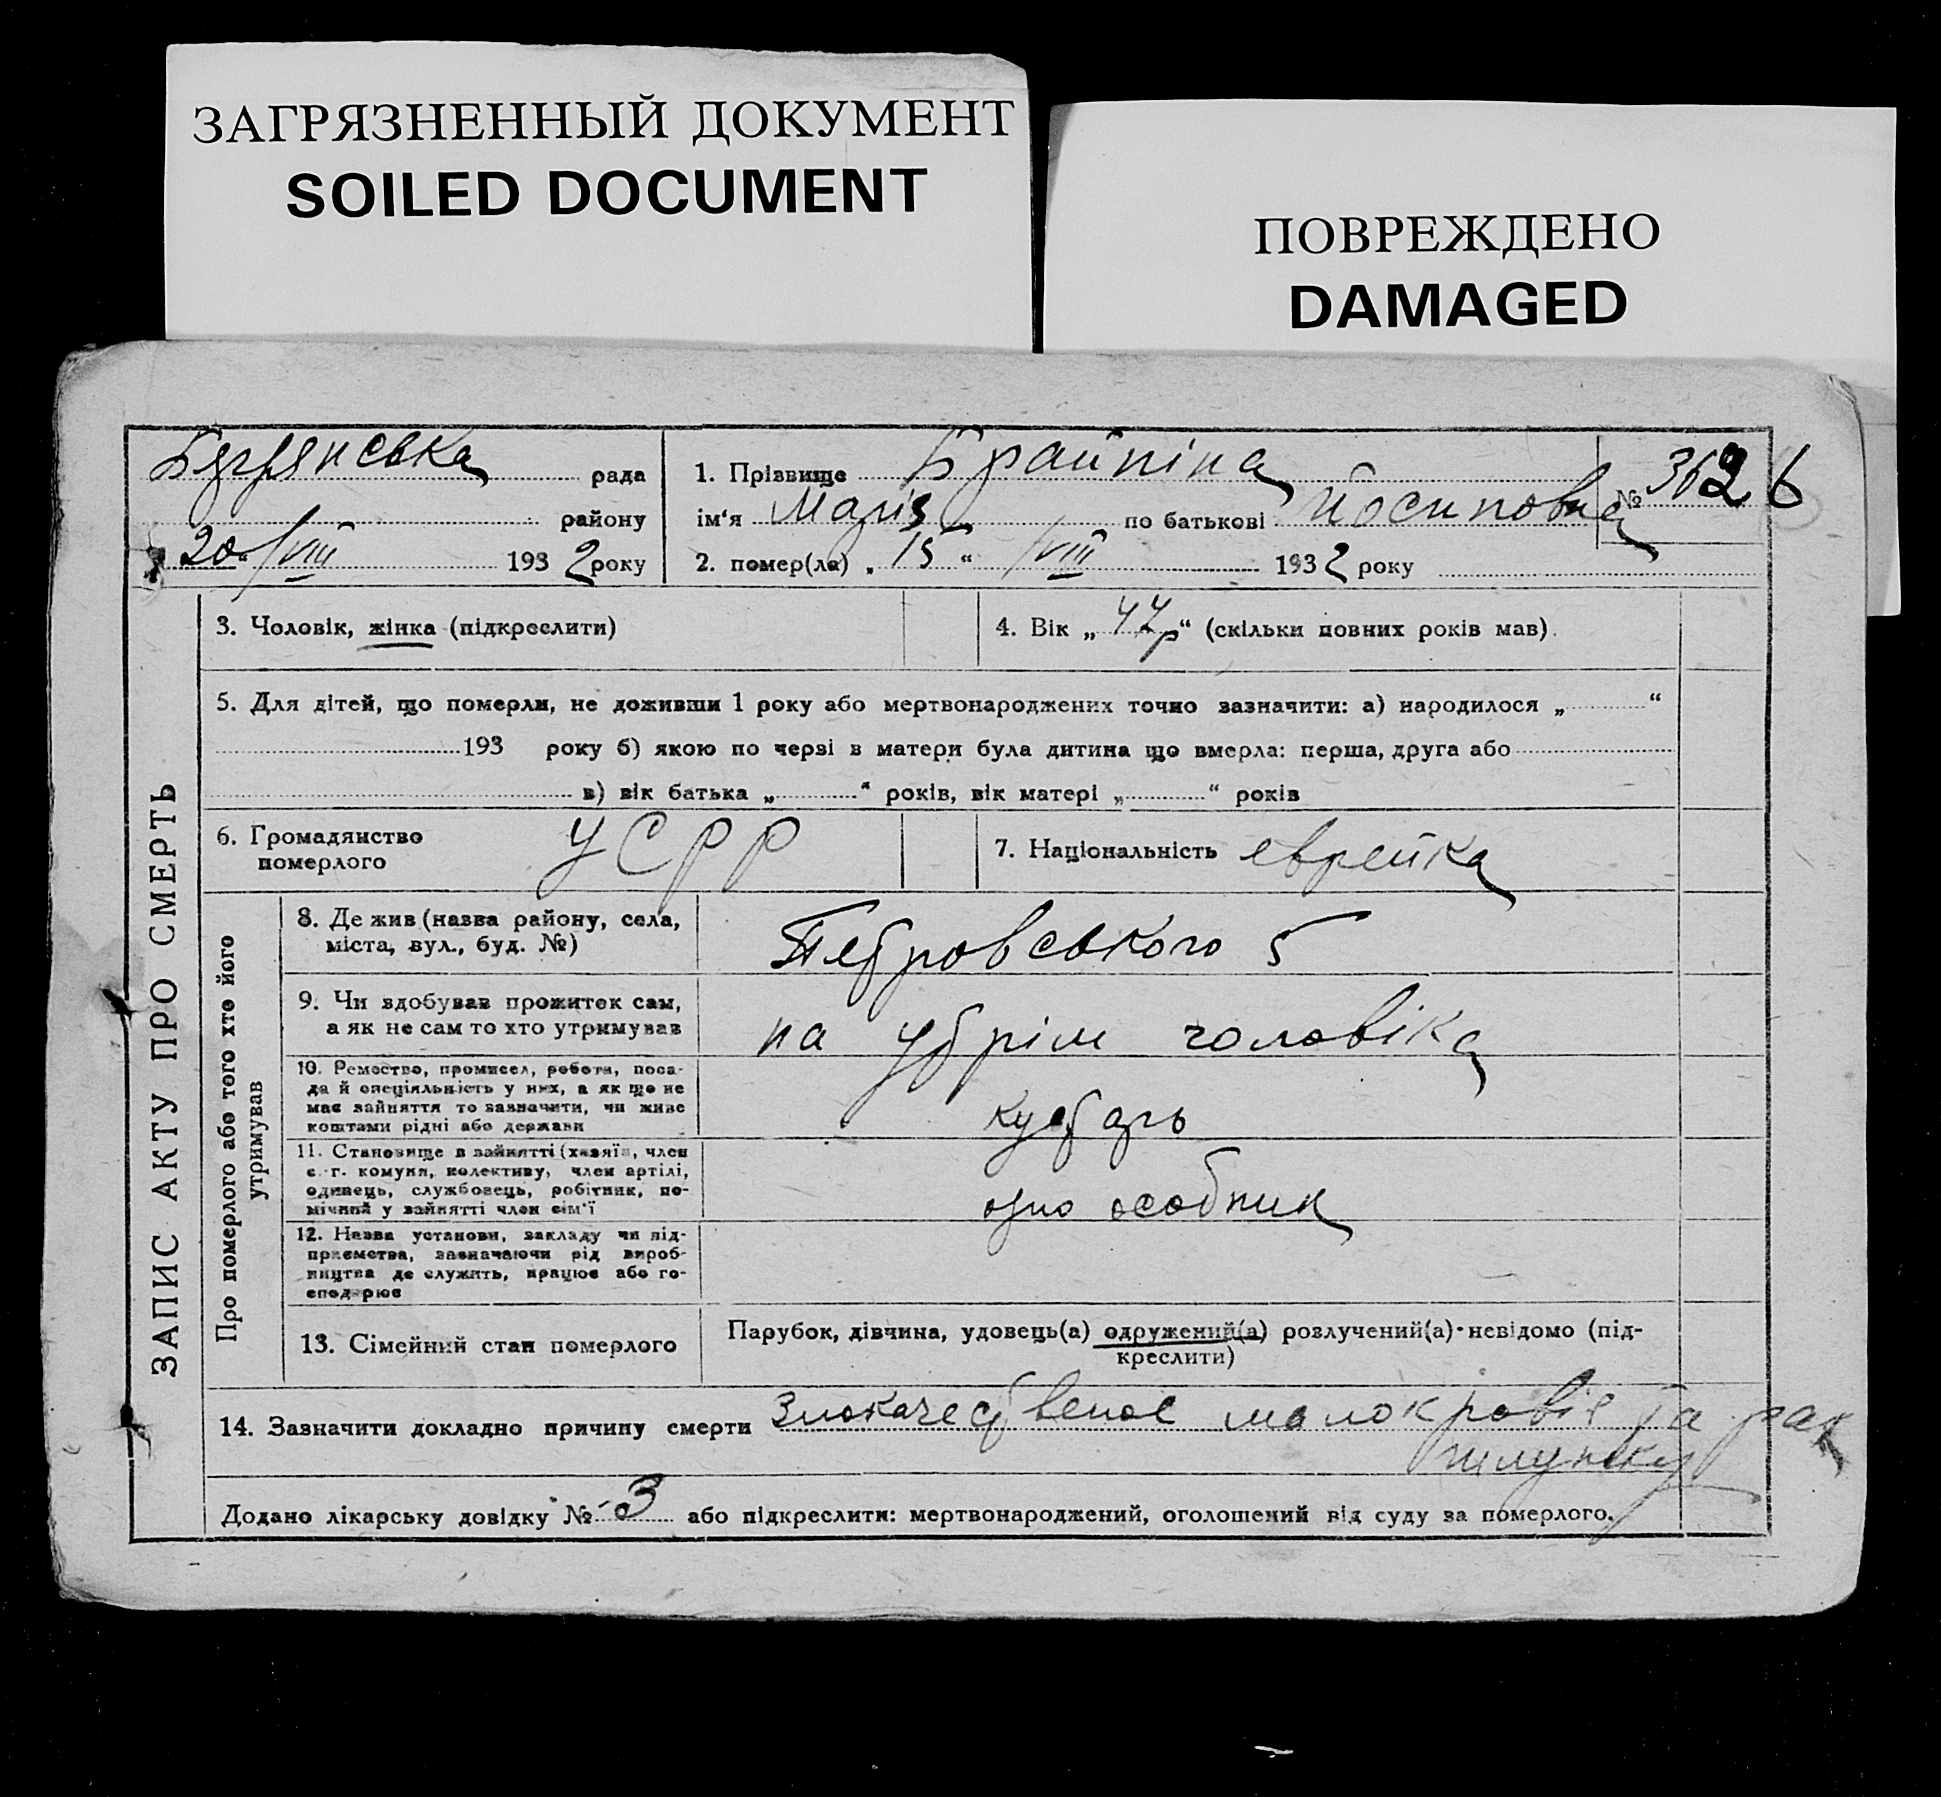 ЗАГРЯЗНЕННЫЙ ДОКУМЕНТ
SOILED DOCUMENT
ПОВРЕЖДЕНО
DAMAGED
рада
району
„20“ /VIII 1932 року
1. Прізвище Брайніна
ім‘я Марія по батькові Йосиповна
№ 362 б
2. помер(ла) „15“ /VIII 1932 року
ЗАПИС АКТУ ПРО СМЕРТЬ
3. Чоловік, жінка (підкреслити)
4. Вік „47р“ (скільки повних років мав).
5. Для дітей, що померли, не доживши 1 року або мертвонароджених точно зазначити: а) народилося „ “
193 року б) якою по черзі в матери була дитина що вмерла: перша, друга або
в) вік батька „ “ років, вік матері „ “ років
6. Громадянство
померлого
УСРР
7. Національність еврейка
Про померлого або того хто його
утримував
8. Де жив (назва району, села,
міста, вул., буд. №)
Петровського 5
9. Чи здобував прожиток сам,
а як не сам то хто утримував
на утрім чоловіка
10. Ремество, промисел, робота, поса-
да й специяльність у них, а як що не
має зайняття то зазначити, чи живе
коштами рідні або держави
кустарь
11. Становище в зайнятті (хазяїн, член
с.-г. комуни, колективу, член артілі,
одинець, службовець, робітник, по-
мічний у зайнятті член сім'ї
одно особник
12. Назва установи, закладу чи під-
приємства, зазначаючи рід вироб-
ництва де служить, працює або го-
сподарює
13. Сімейний стан померлого
Парубок, дівчина, удовець(а) одружений(а) розлучений(а)·невідомо (під-
креслити)
14. Зазначити докладно причину смерти Злокачественое малокровіе та рак
шлунку
Додано лікарську довідку № 3 або підкреслити: мертвонароджений, оголошений від суду за померлого.